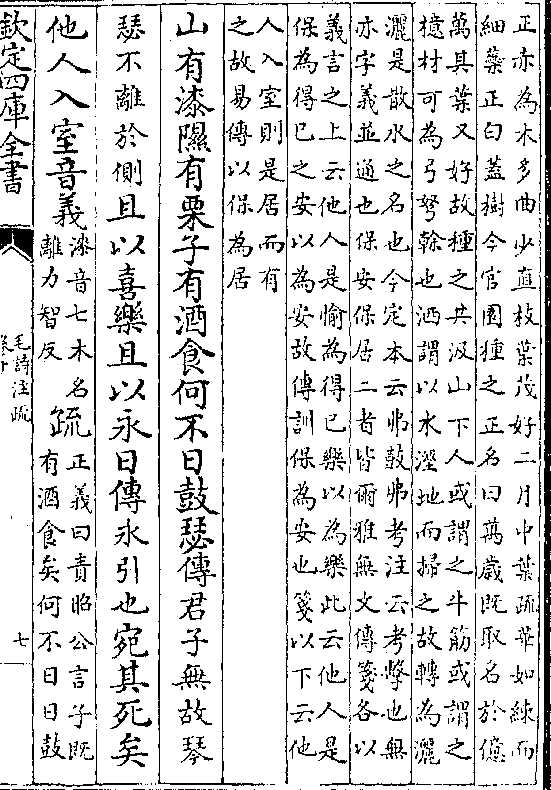 正亦為木多曲少直枝葉茂好二月中葉疏華如練而
細蘂正白蓋樹今官園種之正名曰萬歲既取名於億
萬其葉又好故種之共汲山下人或謂之牛筋或謂之
檍材可為弓弩榦也洒謂以水溼地而掃之故轉為灑
灑是散水之名也今定本云弗鼓弗考注云考擊也無
亦字義並通也保安保居二者皆爾雅無文傳箋各以
義言之上云他人是愉為得已樂以為樂此云他人是
保為得已之安以為安故傳訓保為安也箋以下云他
人入室則是居而有
之故易傳以保為居
山有漆隰有栗子有酒食何不日鼓瑟傳君子無故琴
瑟不離於側且以喜樂且以永日傳永引也宛其死矣
他人入室音義漆音七木名
離力智反
疏正義曰責昭公言子既
有酒食矣何不日日鼓
欽定四庫全書
毛詩注疏
七